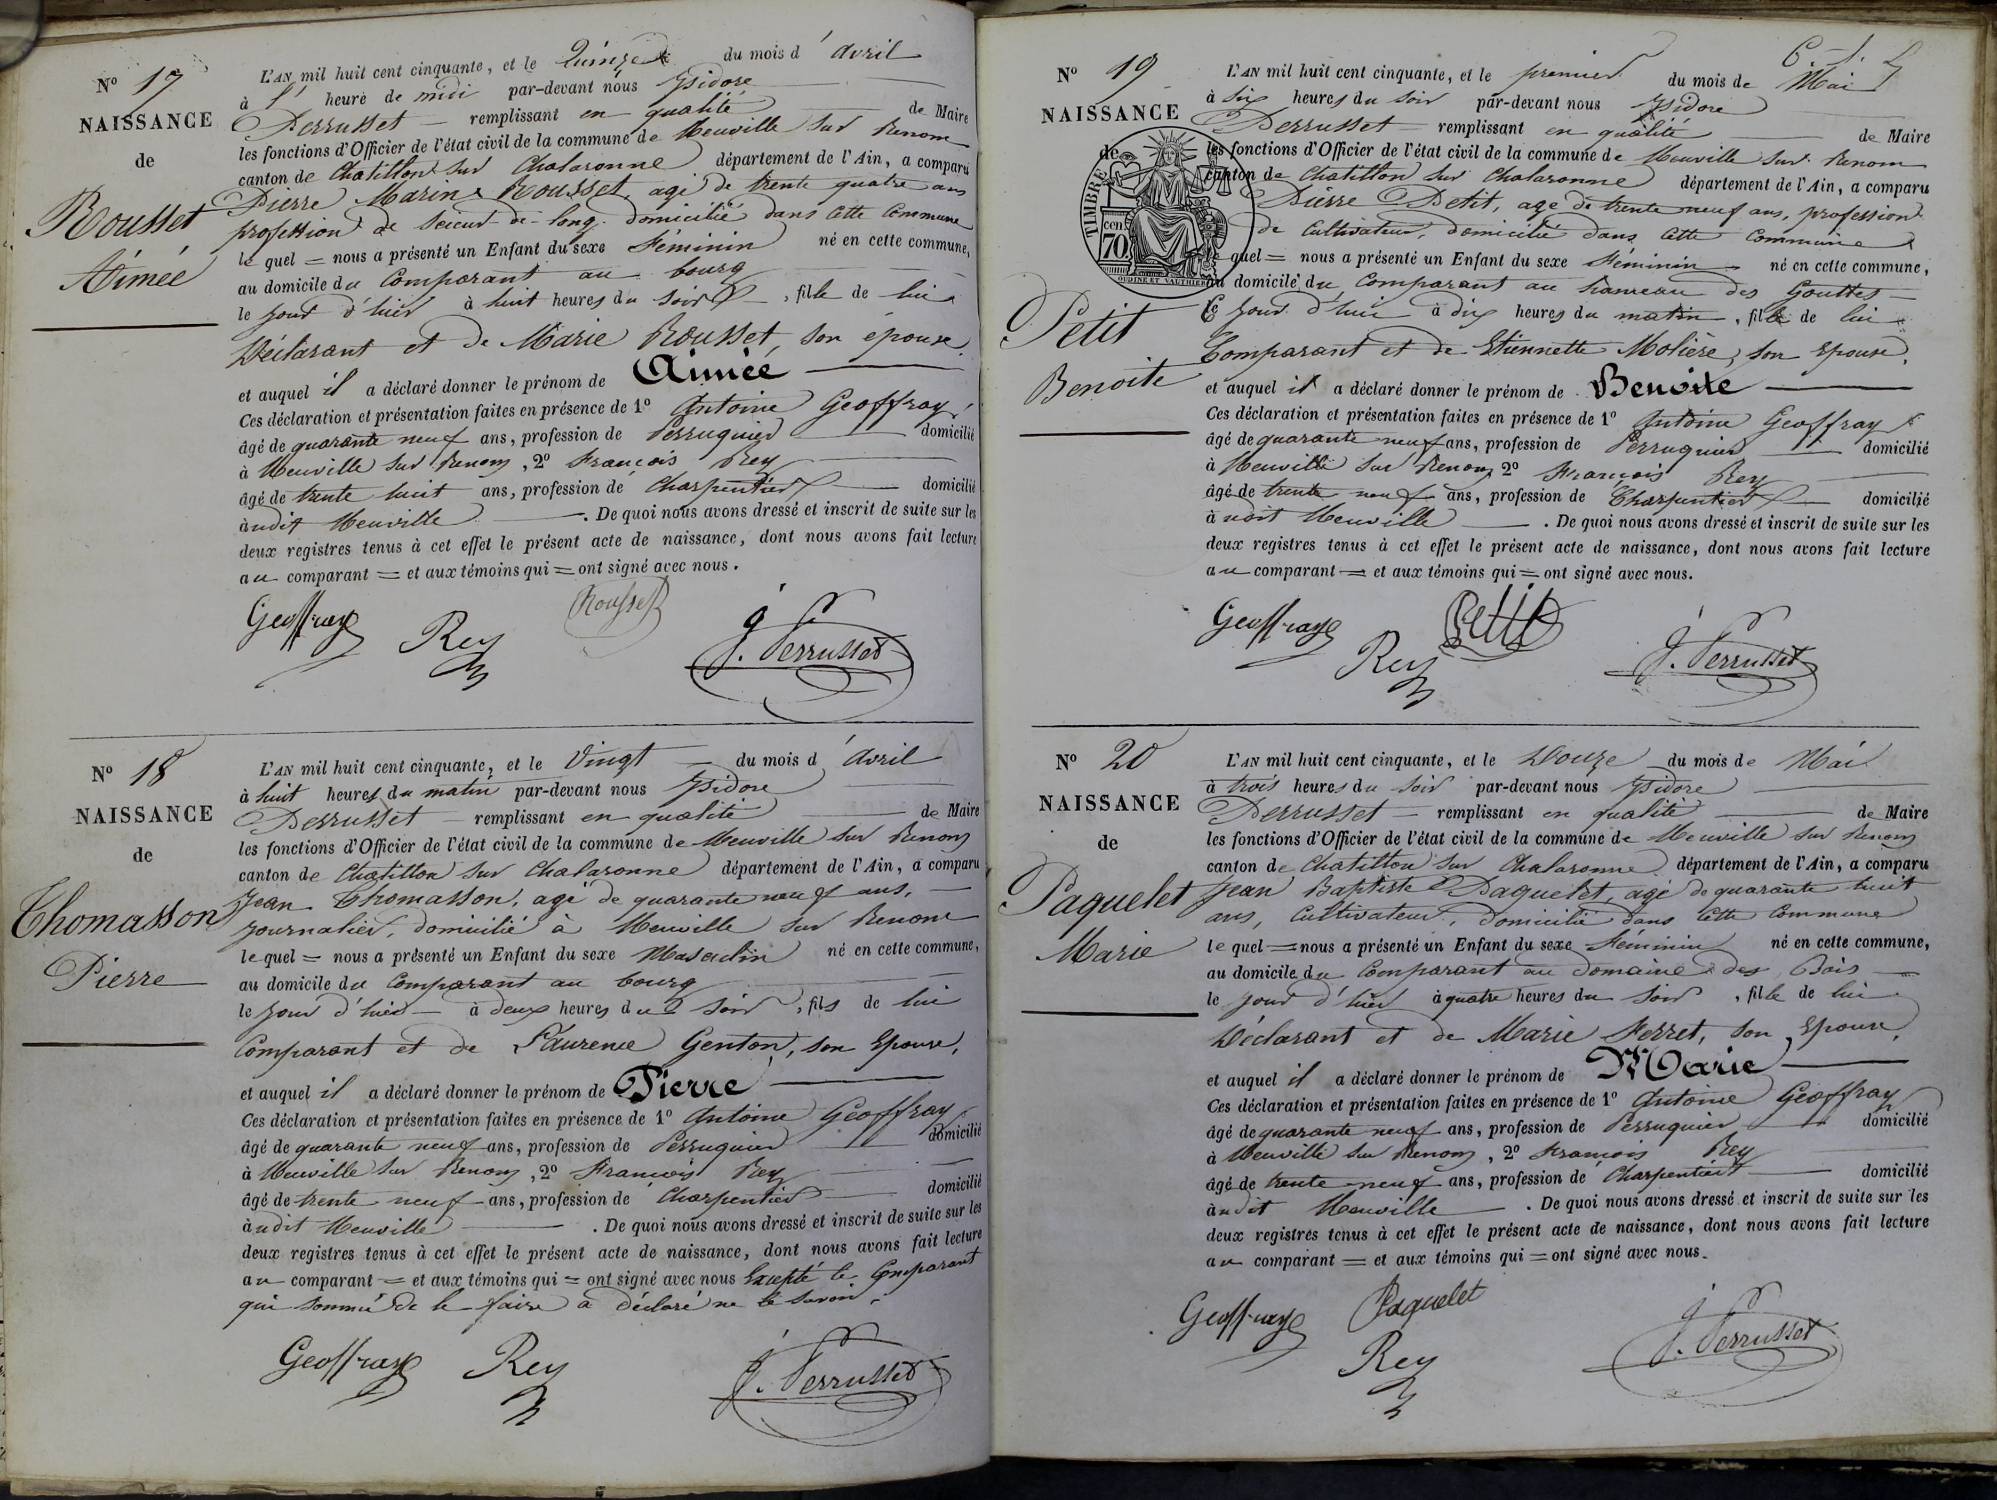 N° 17
NAISSANCE
de
Rousset
Aimée
L'AN mil huit cent cinquante, et le Quinze du mois d'avril
à l'heure de midi par-devant nous Ysidore
Perrusset remplissant en qualité de Maire
les fonctions d'Officier de l'état civil de la commune de Neuville sur Renom
canton de Chatillon sur Chalaronne département de l'Ain, a comparu
Pierre Marin Rousset, agé de trente quatre ans
profession de Scieur de long, domicilié dans cette Commune
le quel = nous a présenté un Enfant du sexe Féminin né en cette commune,
au domicile du Comparant au bourg
le jour d'hier à huit heures du soir, fille de lui
Déclarant et de Marie Rousset, son épouse
et auquel il a déclaré donner le prénom de Aimée
Ces déclaration et présentation faites en présence de 1° Antoine Geoffray,
âgé de quarante neuf ans, profession de Perruquier domicilié
à Neuville sur Renom, 2° François Rey
âgé de trente huit ans, profession de Charpentier domicilié
àudit Neuville. De quoi nous avons dressé et inscrit de suite sur les
deux registres tenus à cet effet le présent acte de naissance, dont nous avons fait lecture
au comparant = et aux témoins qui = ont signé avec nous.
Geoffray Rey Rousset J. Perrusset
N° 18
NAISSANCE
de
Thomasson
Pierre
L'AN mil huit cent cinquante, et le Vingt du mois d'avril
à huit heures du matin par-devant nous Ysidore
Perrusset remplissant en qualité de Maire
les fonctions d'Officier de l'état civil de la commune de Neuville sur Renom
canton de Chatillon sur Chalaronne département de l'Ain, a comparu
Jean Thomasson, agé de quarante neuf ans,
journalier, domicilié à Neuville sur Renom
le quel = nous a présenté un Enfant du sexe Masculin né en cette commune,
au domicile du Comparant au bourg
le jour d'hier à deux heures du soir, fils de lui
Comparant et de Laurence Genton, son Epouse,
et auquel il a déclaré donner le prénom de Pierre
Ces déclaration et présentation faites en présence de 1° Antoine Geoffray,
âgé de quarante neuf ans, profession de Perruquier domicilié
à Neuville sur Renom, 2° François Rey
âgé de trente neuf ans, profession de Charpentier domicilié
àudit Neuville. De quoi nous avons dressé et inscrit de suite sur les
deux registres tenus à cet effet le présent acte de naissance, dont nous avons fait lecture
au comparant = et aux témoins qui = ont signé avec nous Excepté le Comparant
qui sommé de le faire a déclaré ne le savoir.
Geoffray Rey J. Perrusset
N° 19
NAISSANCE
de
TIMBRE
70 cen
OUDINÉ ET VAUTHIER
Petit
Benoite
L'AN mil huit cent cinquante, et le premier du mois de Mai
à six heures du soir par-devant nous Ysidore
Perrusset remplissant en qualité de Maire
les fonctions d'Officier de l'état civil de la commune de Neuville sur Renom
canton de Chatillon sur Chalaronne département de l'Ain, a comparu
Pierre Petit, agé de trente neuf ans, profession
de Cultivateur, domicilié dans cette Commune
le quel = nous a présenté un Enfant du sexe Féminin né en cette commune,
au domicile du Comparant au hameau des Gouttes
le jour d'hui à dix heures du matin, fille de lui
Comparant et de Etiennette Molière, son Epouse,
et auquel il a déclaré donner le prénom de Benoite
Ces déclaration et présentation faites en présence de 1° Antoine Geoffray
âgé de quarante neuf ans, profession de Perruquier domicilié
à Neuville sur Renom 2° François Rey
âgé de trente neuf ans, profession de Charpentier domicilié
àudit Neuville. De quoi nous avons dressé et inscrit de suite sur les
deux registres tenus à cet effet le présent acte de naissance, dont nous avons fait lecture
au comparant = et aux témoins qui = ont signé avec nous.
Geoffray Rey Petit J. Perrusset
N° 20
NAISSANCE
de
Paquelet
Marie
L'AN mil huit cent cinquante, et le Douze du mois de Mai
à trois heures du soir par-devant nous Ysidore
Perrusset remplissant en qualité de Maire
les fonctions d'Officier de l'état civil de la commune de Neuville sur Renom
canton de Chatillon sur Chalaronne département de l'Ain, a comparu
Jean Baptiste Paquelet, agé de quarante huit
ans, Cultivateur, domicilié dans cette Commune
le quel = nous a présenté un Enfant du sexe Féminin né en cette commune,
au domicile du Comparant au domaine des Bois
le jour d'hier à quatre heures du soir, fille de lui
Déclarant et de Marie Ferret, son Epouse,
et auquel il a déclaré donner le prénom de Marie
Ces déclaration et présentation faites en présence de 1° Antoine Geoffray
âgé de quarante neuf ans, profession de Perruquier domicilié
à Neuville sur Renom, 2° François Rey
âgé de trente neuf ans, profession de Charpentier domicilié
àudit Neuville. De quoi nous avons dressé et inscrit de suite sur les
deux registres tenus à cet effet le présent acte de naissance, dont nous avons fait lecture
au comparant = et aux témoins qui = ont signé avec nous.
Geoffray Paquelet Rey J. Perrusset